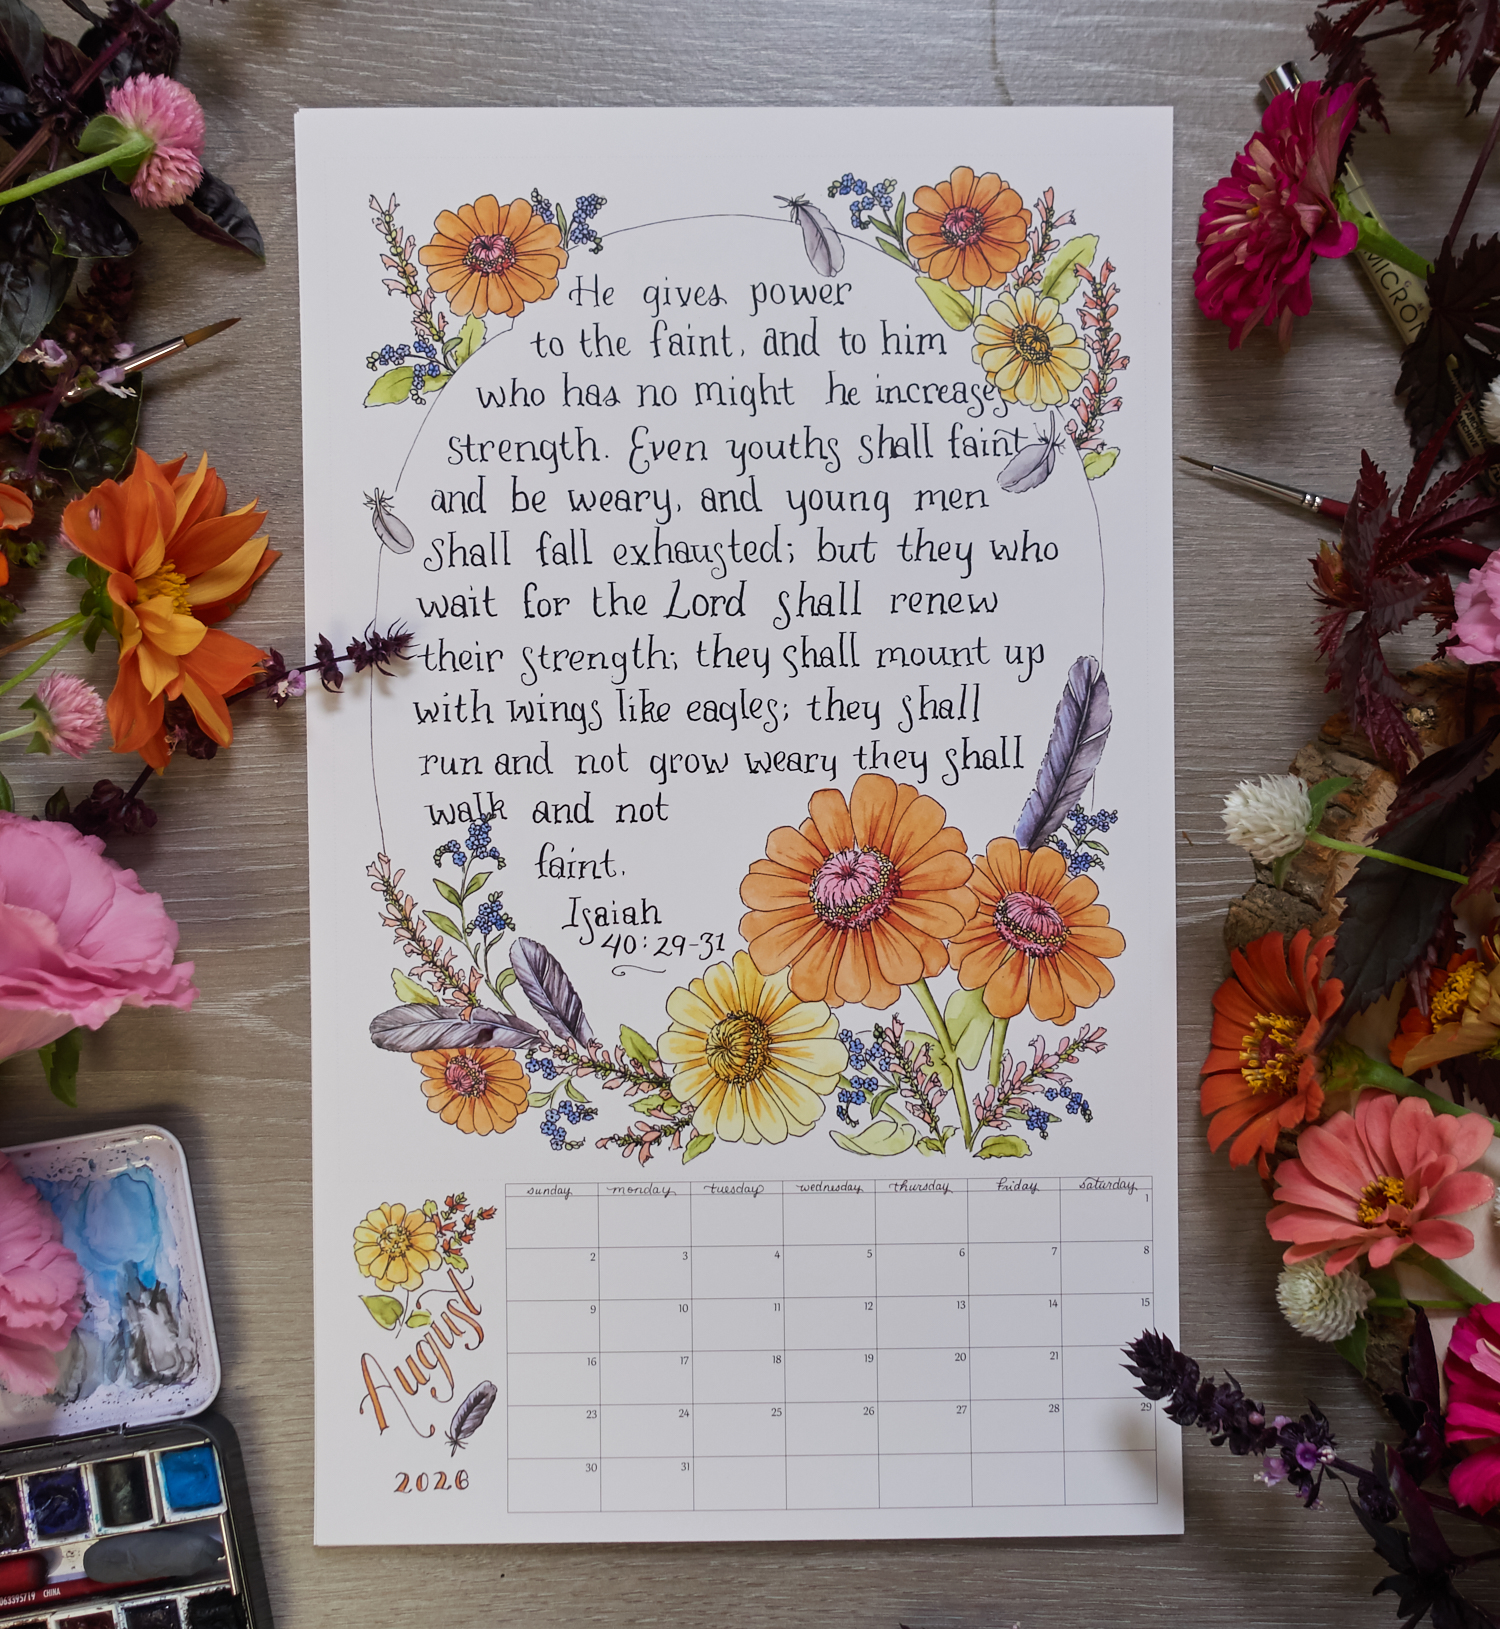 He gives power
to the faint, and to him
who has no might he increases
strength. Even youths shall faint
and be weary, and young men
shall fall exhausted; but they who
wait for the Lord shall renew
their strength; they shall mount up
with wings like eagles; they shall
run and not grow weary they shall
walk and not
faint.
Isaiah
40:29-31
sunday monday tuesday wednesday thursday friday saturday
1
2 3 4 5 6 7 8
9 10 11 12 13 14 15
16 17 18 19 20 21
23 24 25 26 27 28 29
30 31
August
2026
MICRON
063395/19 CHINA